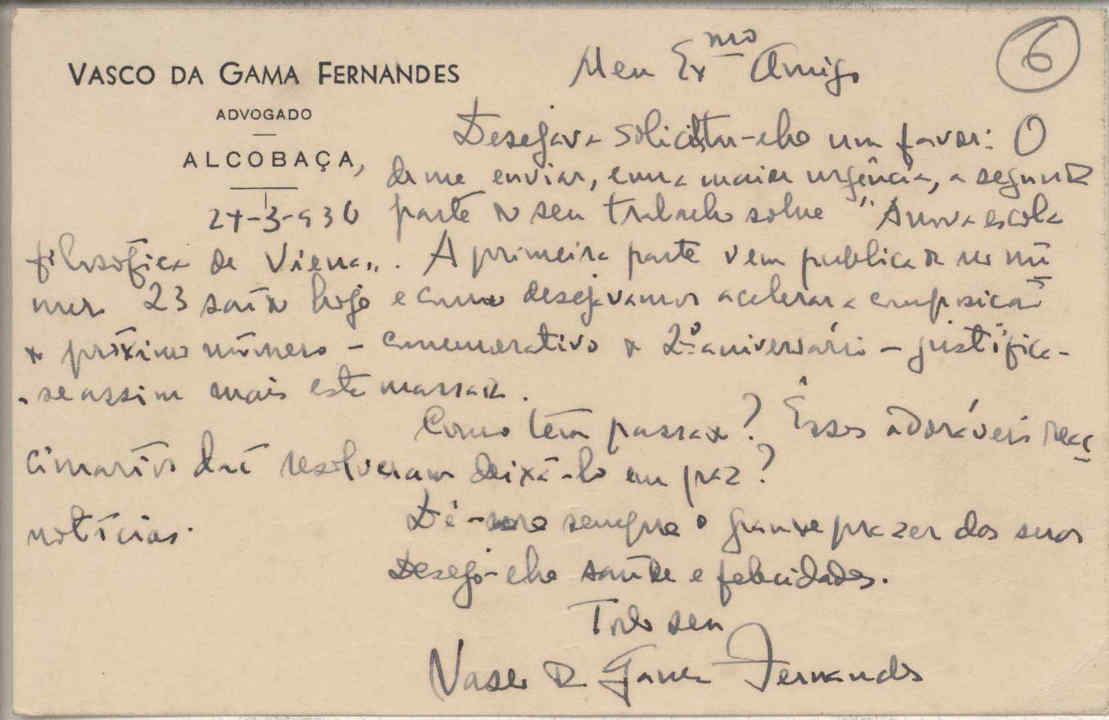 VASCO DA GAMA FERNANDES
ADVOGADO
ALCOBAÇA,
27-3-936
6
Meu Exmo Amigo
Desejava solicitar-lhe um favor: O
de me enviar, com a maior urgência, a segunda
parte do seu trabalho sobre "A nova escola
filosófica de Viena". A primeira parte vem publicada no nú
mero 23 saído hoje e como desejavamos acelerar a composição
do próximo número - comemorativo do 2º aniversário - justifica-
-se assim mais esta massada.
Como tem passado? Êsses adoráveis reac
cionarios daí resolveram deixá-lo em paz?
Dê-me sempre o grande prazer das suas
notícias.
Desejo-lhe saúde e felicidades.
Todo seu
Vasco da Gama Fernandes